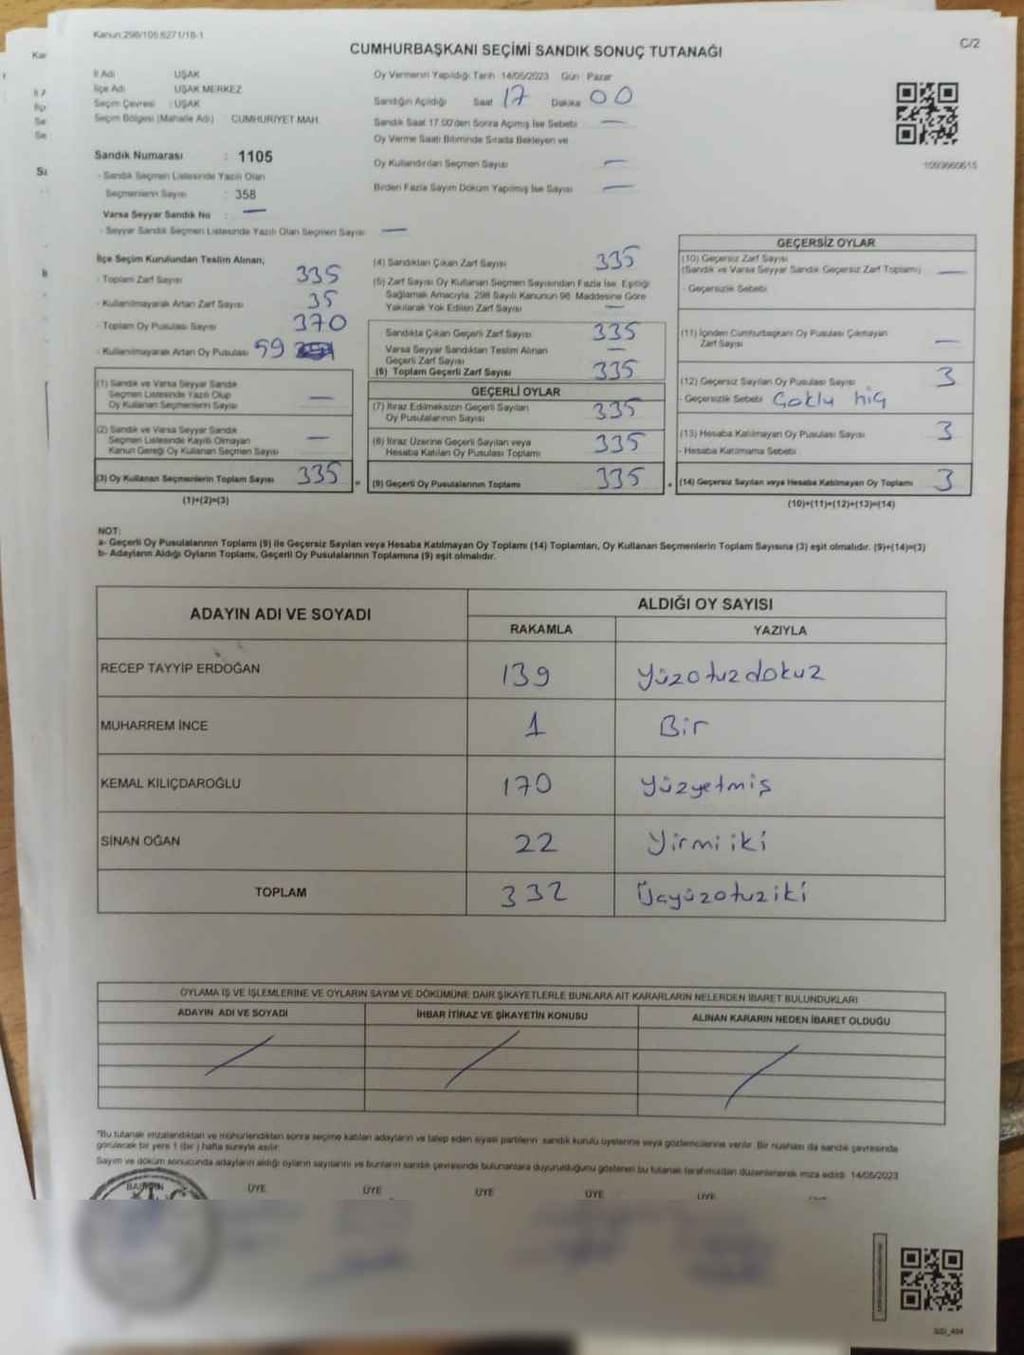 Kanun:298/105.6271/18-1
C/2
CUMHURBAŞKANI SEÇİMİ SANDIK SONUÇ TUTANAĞI
İl Adı : UŞAK
İlçe Adı : UŞAK MERKEZ
Seçim Çevresi : UŞAK
Seçim Bölgesi (Mahalle Adı) CUMHURİYET MAH.
Sandık Numarası : 1105
- Sandık Seçmen Listesinde Yazılı Olan
Seçmenlerin Sayısı : 358
Varsa Seyyar Sandık No : —
- Seyyar Sandık Seçmen Listesinde Yazılı Olan Seçmen Sayısı —
Oy Vermenin Yapıldığı Tarih 14/05/2023 Gün : Pazar
Sandığın Açıldığı Saat 17 Dakika 00
Sandık Saat 17.00'den Sonra Açımış İse Sebebi —
Oy Verme Saati Bitiminde Sırada Bekleyen ve
Oy Kullandırılan Seçmen Sayısı —
Birden Fazla Sayım Döküm Yapılmış İse Sayısı —
1093660615
İlçe Seçim Kurulundan Teslim Alınan;
- Toplam Zarf Sayısı 335
- Kullanılmayarak Artan Zarf Sayısı 35
- Toplam Oy Pusulası Sayısı 370
- Kullanılmayarak Artan Oy Pusulası 59
(1) Sandık ve Varsa Seyyar Sandık
Seçmen Listesinde Yazılı Olup
Oy Kullanan Seçmenlerin Sayısı —
(2) Sandık ve Varsa Seyyar Sandık
Seçmen Listesinde Kayıtlı Olmayan
Kanun Gereği Oy Kullanan Seçmen Sayısı —
(3) Oy Kullanan Seçmenlerin Toplam Sayısı 335
(1)+(2)=(3)
(4) Sandıktan Çıkan Zarf Sayısı 335
(5) Zarf Sayısı Oy Kullanan Seçmen Sayısından Fazla İse, Eşitliği
Sağlamak Amacıyla, 298 Sayılı Kanunun 98. Maddesine Göre
Yakılarak Yok Edilen Zarf Sayısı —
Sandıkta Çıkan Geçerli Zarf Sayısı 335
Varsa Seyyar Sandıktan Teslim Alınan
Geçerli Zarf Sayısı —
(6) Toplam Geçerli Zarf Sayısı 335
GEÇERLİ OYLAR
(7) İtiraz Edilmeksizin Geçerli Sayılan
Oy Pusulalarının Sayısı 335
(8) İtiraz Üzerine Geçerli Sayılan veya
Hesaba Katılan Oy Pusulası Toplamı 335
(9) Geçerli Oy Pusulalarının Toplamı 335
GEÇERSİZ OYLAR
(10) Geçersiz Zarf Sayısı
(Sandık ve Varsa Seyyar Sandık Geçersiz Zarf Toplamı) —
- Geçersizlik Sebebi
(11) İçinden Cumhurbaşkanı Oy Pusulası Çıkmayan
Zarf Sayısı —
(12) Geçersiz Sayılan Oy Pusulası Sayısı 3
- Geçersizlik Sebebi Çoklu hiç
(13) Hesaba Katılmayan Oy Pusulası Sayısı 3
- Hesaba Katılmama Sebebi
(14) Geçersiz Sayılan veya Hesaba Katılmayan Oy Toplamı 3
(10)+(11)+(12)+(13)=(14)
NOT:
a- Geçerli Oy Pusulalarının Toplamı (9) ile Geçersiz Sayılan veya Hesaba Katılmayan Oy Toplamı (14) Toplamları, Oy Kullanan Seçmenlerin Toplam Sayısına (3) eşit olmalıdır. (9)+(14)=(3)
b- Adayların Aldığı Oyların Toplamı, Geçerli Oy Pusulalarının Toplamına (9) eşit olmalıdır.
ADAYIN ADI VE SOYADI
ALDIĞI OY SAYISI
RAKAMLA YAZIYLA
RECEP TAYYİP ERDOĞAN 139 Yüzotuzdokuz
MUHARREM İNCE 1 Bir
KEMAL KILIÇDAROĞLU 170 Yüzyetmiş
SİNAN OĞAN 22 Yirmiiki
TOPLAM 332 Üçyüzotuziki
OYLAMA İŞ VE İŞLEMLERİNE VE OYLARIN SAYIM VE DÖKÜMÜNE DAİR ŞİKAYETLERLE BUNLARA AİT KARARLARIN NELERDEN İBARET BULUNDUKLARI
ADAYIN ADI VE SOYADI İHBAR İTİRAZ VE ŞİKAYETİN KONUSU ALINAN KARARIN NEDEN İBARET OLDUĞU
"Bu tutanak imzalandıktan ve mühürlendikten sonra seçime katılan adayların ve talep eden siyasi partilerin sandık kurulu üyelerine veya gözlemcilerine verilir. Bir nüshası da sandık çevresinde
görülecek bir yere 1 (bir ) hafta süreyle asılır.
Sayım ve döküm sonucunda adayların aldığı oyların sayılarını ve bunların sandık çevresinde bulunanlara duyurulduğunu gösteren bu tutanak tarafımızdan düzenlenerek imza edildi. 14/05/2023
BAŞKAN ÜYE ÜYE ÜYE ÜYE ÜYE